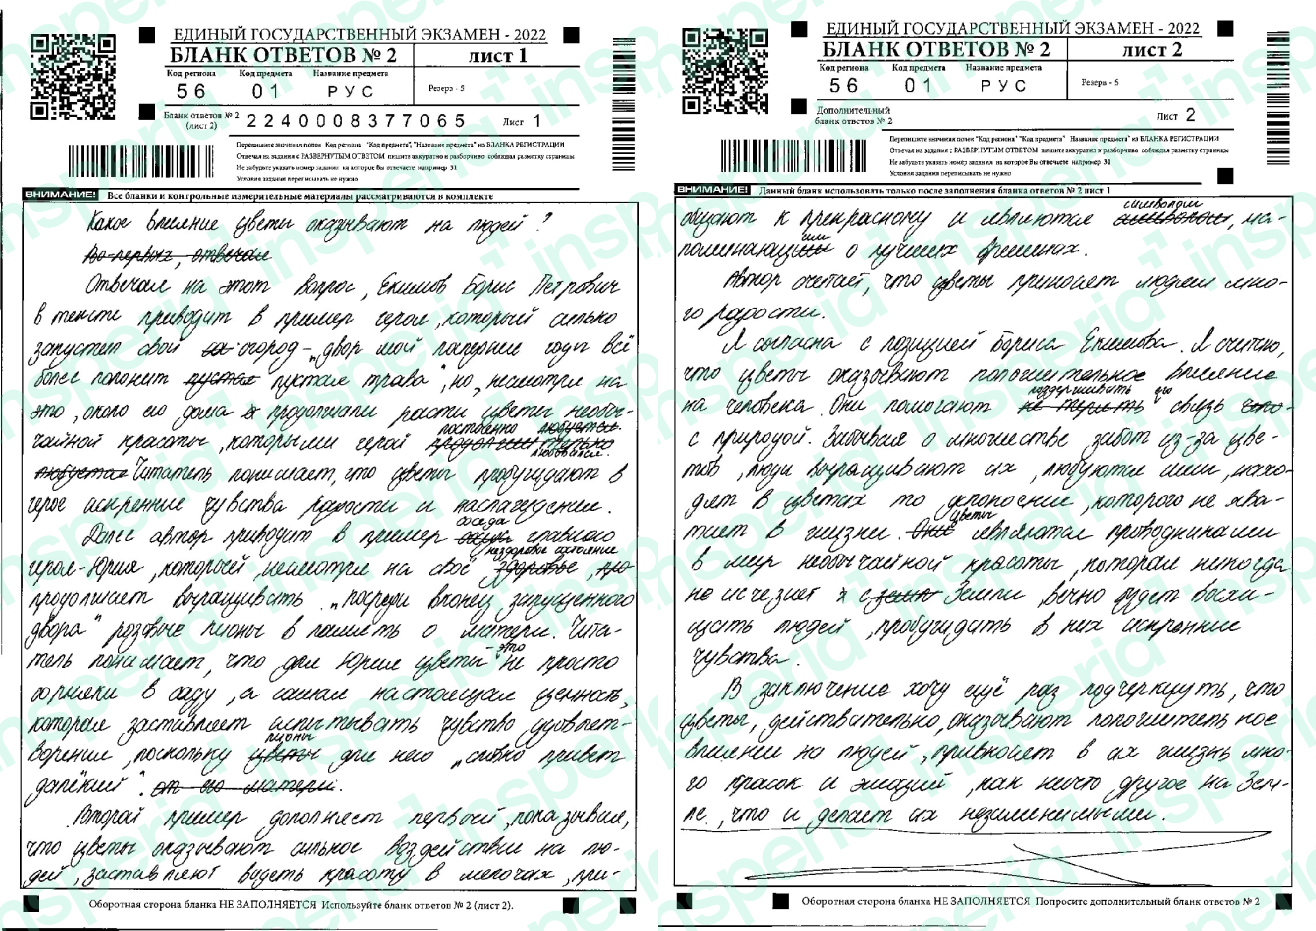 ЕДИНЫЙ ГОСУДАРСТВЕННЫЙ ЭКЗАМЕН - 2022
БЛАНК ОТВЕТОВ № 2
лист 1
Код региона
Код предмета
Название предмета
Резерв - 5
56
01
РУС
Бланк ответов № 2
(лист 2)
2240008377065
Лист 1
Перепишите значения полей "Код региона", "Код предмета", "Название предмета" из БЛАНКА РЕГИСТРАЦИИ
Отвечая на задания с РАЗВЕРНУТЫМ ОТВЕТОМ, пишите аккуратно и разборчиво, соблюдая разметку страницы
Не забудьте указать номер задания, на которое Вы отвечаете, например 31
Условия задания переписывать не нужно
ВНИМАНИЕ!
Все бланки и контрольные измерительные материалы рассматриваются в комплекте
Какое влияние цветы оказывают на людей?
Во-первых, отвечая
Отвечая на этот вопрос, Екимов Борис Петрович
в тексте приводит в пример героя, который сильно
запустел свой огород - "двор мой последние годы всё
более полонит пустая трава", но, несмотря на
это, около его дома продолжали расти цветы необы-
чайной красоты, которыми герой постоянно
любовался.
Читатель понимает, что цветы пробуждают в
герое искренние чувства радости и наслаждения.
Далее автор приводит в пример соседа главного
героя-Юрия, который, несмотря на своё нездоровое состояние,
продолжает выращивать "посреди вконец запущенного
двора" розовые пионы в память о матери. Чита-
тель понимает, что для Юрия цветы - это не просто
сорняки в саду, а самая настоящая ценность,
которая заставляет испытывать чувство удовлет-
ворения, поскольку пионы для него "словно привет
далёкий". от его матери.
Второй пример дополняет первый, показывая,
что цветы оказывают сильное воздействие на лю-
дей, заставляют видеть красоту в мелочах, при-
Оборотная сторона бланка НЕ ЗАПОЛНЯЕТСЯ Используйте бланк ответов № 2 (лист 2).
ЕДИНЫЙ ГОСУДАРСТВЕННЫЙ ЭКЗАМЕН - 2022
БЛАНК ОТВЕТОВ № 2
лист 2
Код региона
Код предмета
Название предмета
Резерв - 5
56
01
РУС
Дополнительный
бланк ответов № 2
Лист 2
Перепишите значения полей "Код региона", "Код предмета", "Название предмета" из БЛАНКА РЕГИСТРАЦИИ
Отвечая на задания с РАЗВЕРНУТЫМ ОТВЕТОМ, пишите аккуратно и разборчиво, соблюдая разметку страницы
Не забудьте указать номер задания, на которое Вы отвечаете, например 31
Условия задания переписывать не нужно
ВНИМАНИЕ!
Данный бланк использовать только после заполнения бланка ответов № 2 лист 1
общают к прекрасному и являются символами, на-
поминающими о лучших временах.
Автор считает, что цветы приносят людям мно-
го радости.
Я согласна с позицией Бориса Екимова. Я считаю,
что цветы оказывают положительное влияние
на человека. Они помогают поддерживать его связь
с природой. Забывая о множестве забот из-за цве-
тов, люди выращивают их, любуются ими, нахо-
дят в цветах то успокоение, которого не хва-
тает в жизни. Цветы являются проводниками
в мир необычайной красоты, которая никогда
не исчезнет с Земли вечно будет восхи-
щать людей, пробуждать в них искренние
чувства.
В заключение хочу ещё раз подчеркнуть, что
цветы, действительно, оказывают положительное
влияние на людей, привносят в их жизнь мно-
го красок и эмоций, как ничто другое на Зем-
ле, что и делает их незаменимыми.
Оборотная сторона бланка НЕ ЗАПОЛНЯЕТСЯ Попросите дополнительный бланк ответов № 2
insperia